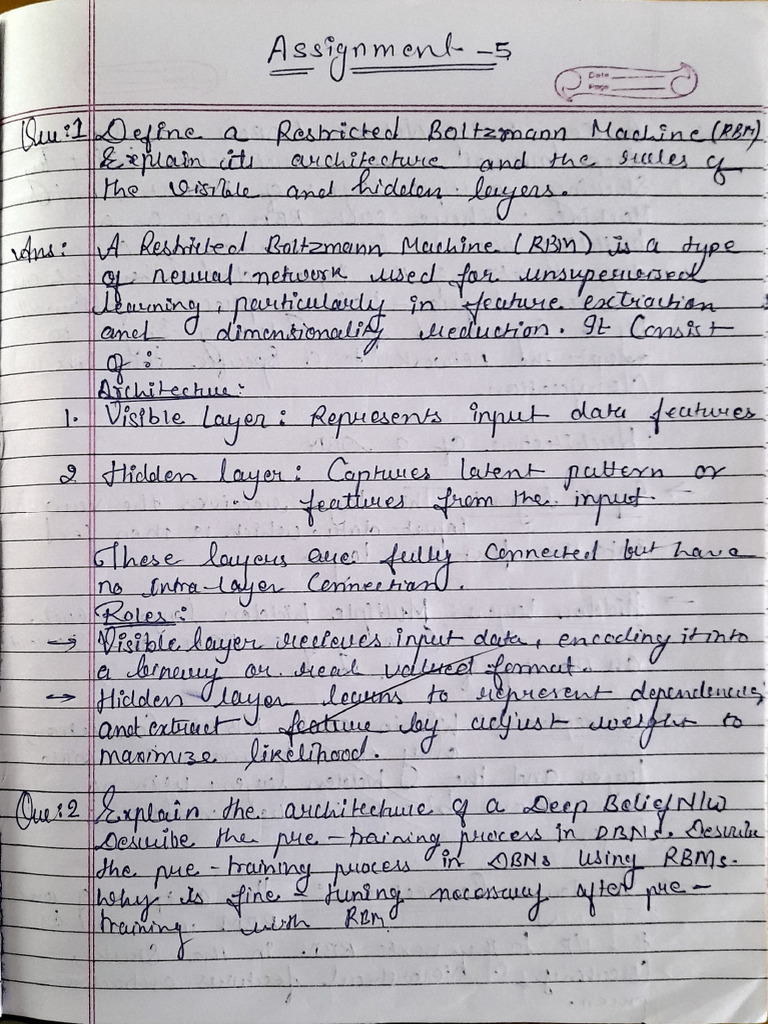 Assignment -5
Date
Page
Que:1 Define a Restricted Boltzmann Machine (RBM)
Explain its architecture and the rules of
the visible and hidden layers.
Ans: A Restricted Boltzmann Machine (RBM) is a type
of neural network used for unsupervised
learning, particularly in feature extraction
and dimensionality reduction. It Consist
of :
Architecture:
1. Visible Layer: Represents input data features
2 Hidden layer: Captures latent pattern or
features from the input.
These layers are fully connected but have
no intra-layer Connection.
Roles:
→ Visible layer recieves input data, encoding it into
a binary or real valued format.
→ Hidden layer learns to represent dependencies
and extract feature by adjust weight to
maximize likelihood.
Que:2 Explain the architecture of a Deep Belief N/W
Describe the pre-training process in DBNs. Describe
the pre-training process in DBNs using RBMs.
Why is fine-tuning necessary after pre-
training with RBM